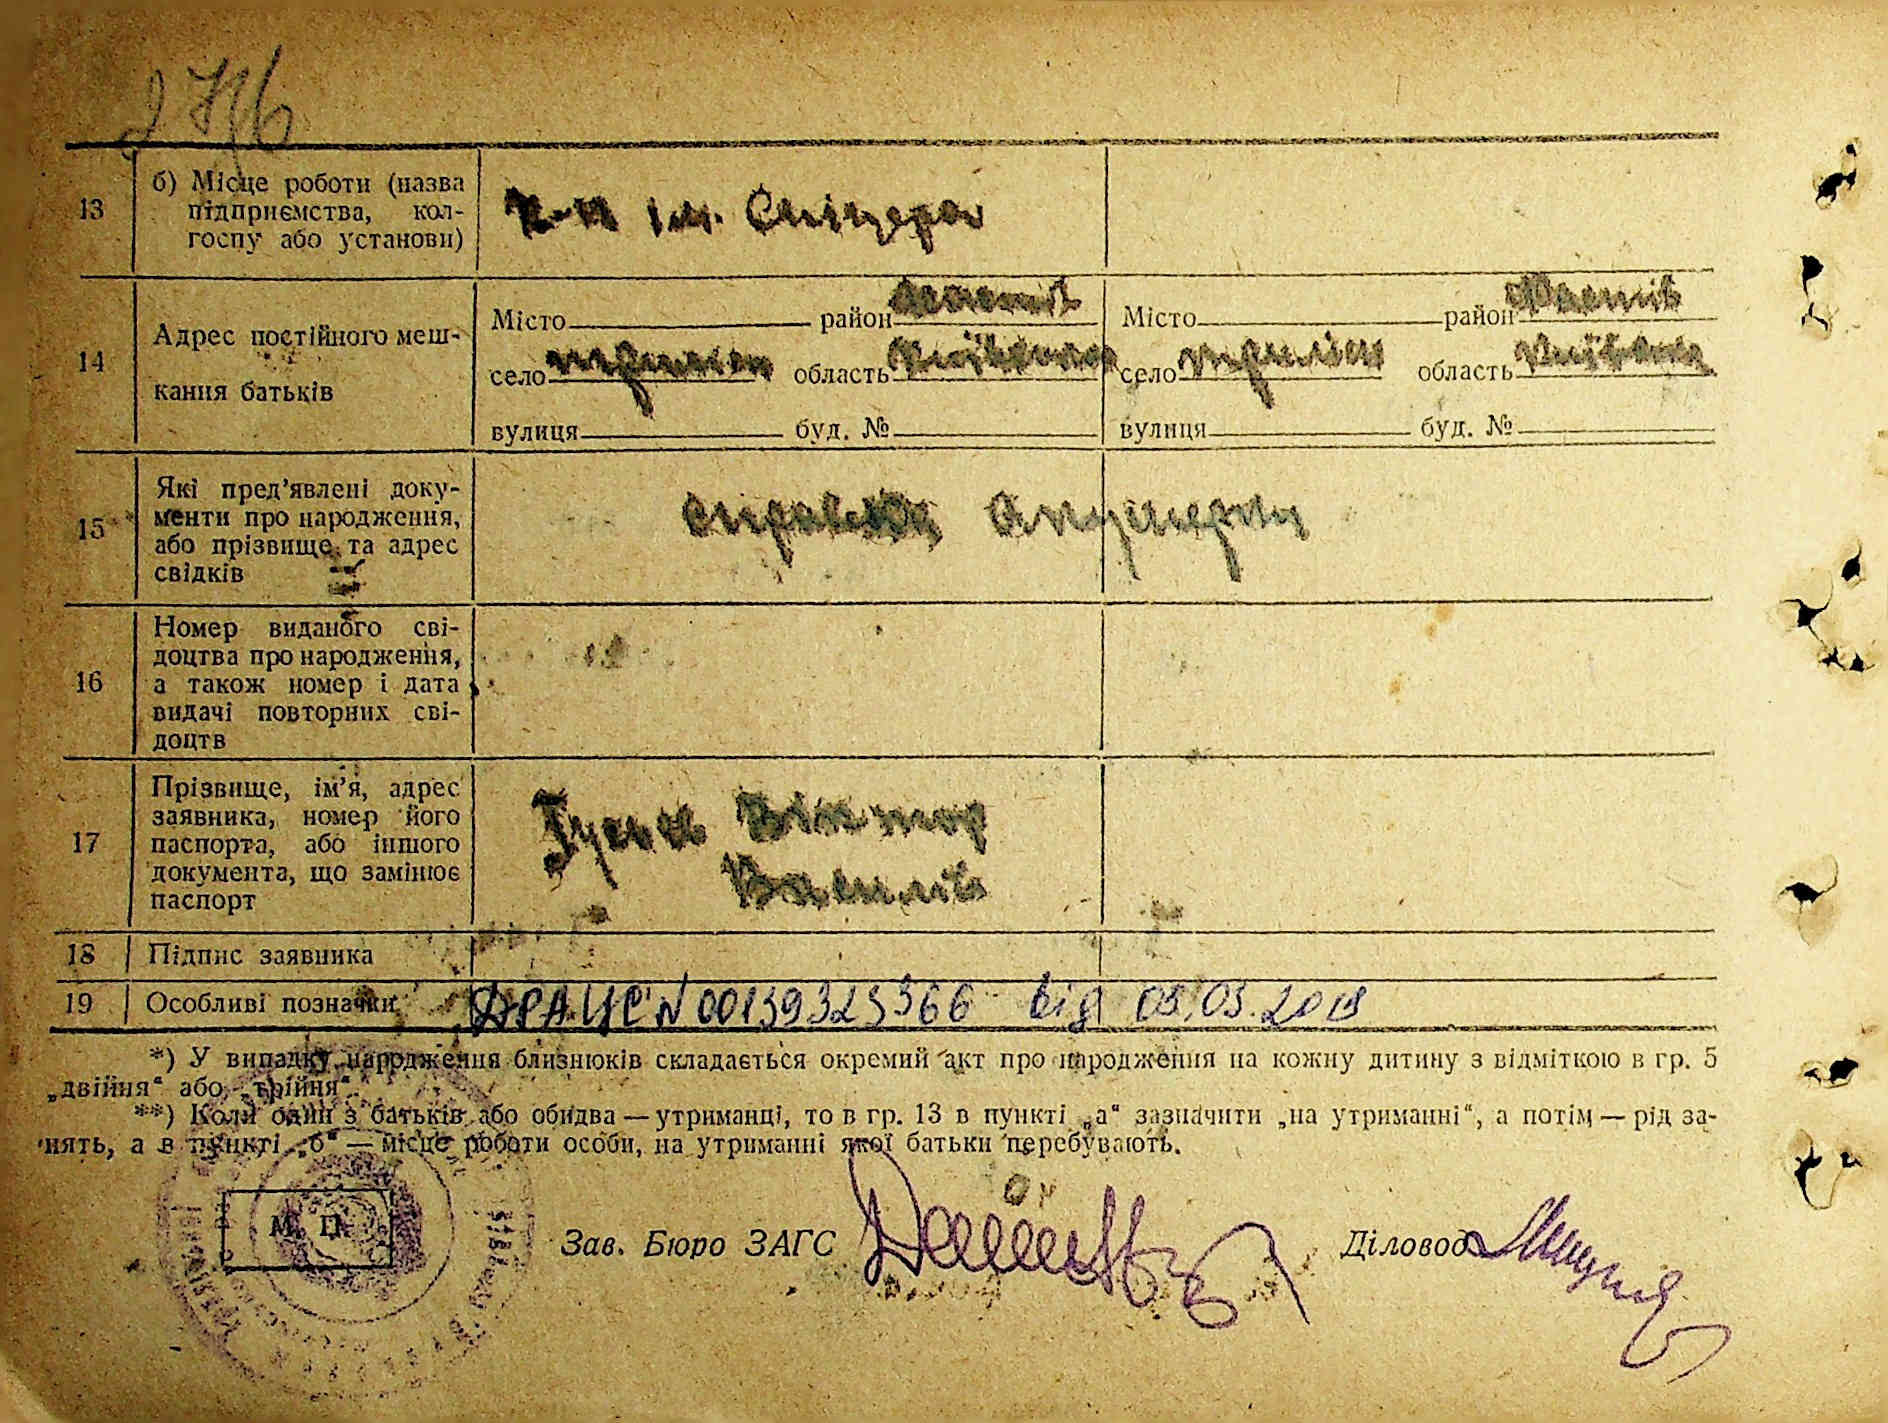 276
13
б) Місце роботи (назва
підприємства, кол-
госпу або установи)
к-п ім. Спіцера
14
Адрес постійного меш-
кання батьків
Місто район Фастів
село область Київська
вулиця буд. №
Місто район Фастів
село область Київська
вулиця буд. №
15
Які пред’явлені доку-
менти про народження,
або прізвище та адрес
свідків
справка Акушерки
16
Номер виданого сві-
доцтва про народження,
а також номер і дата
видачі повторних сві-
доцтв
17
Прізвище, ім’я, адрес
заявника, номер його
паспорта, або іншого
документа, що замінює
паспорт
Віктор
18
Підпис заявника
19
Особливі позначки
ДРАЦС N 00139323366 від 05.03.2019
*) У випадку народження близнюків складається окремий акт про народження на кожну дитину з відміткою в гр. 5
„двійня“ або „трійня“.
**) Коли один з батьків або обидва — утриманці, то в гр. 13 в пункті „а“ зазначити „на утриманні“, а потім — рід за-
нять, а в пункті „б“ — місце роботи особи, на утриманні якої батьки перебувають.
М. П.
Зав. Бюро ЗАГС
Діловод